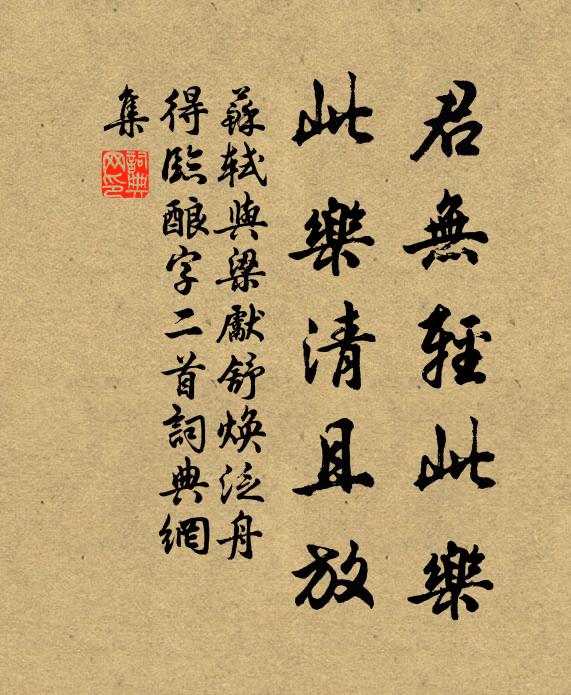 君無輕此樂
此樂清且放
蘇軾與梁獻舒煥泛舟
得臨釀字二首詞典網
集
詞典网印